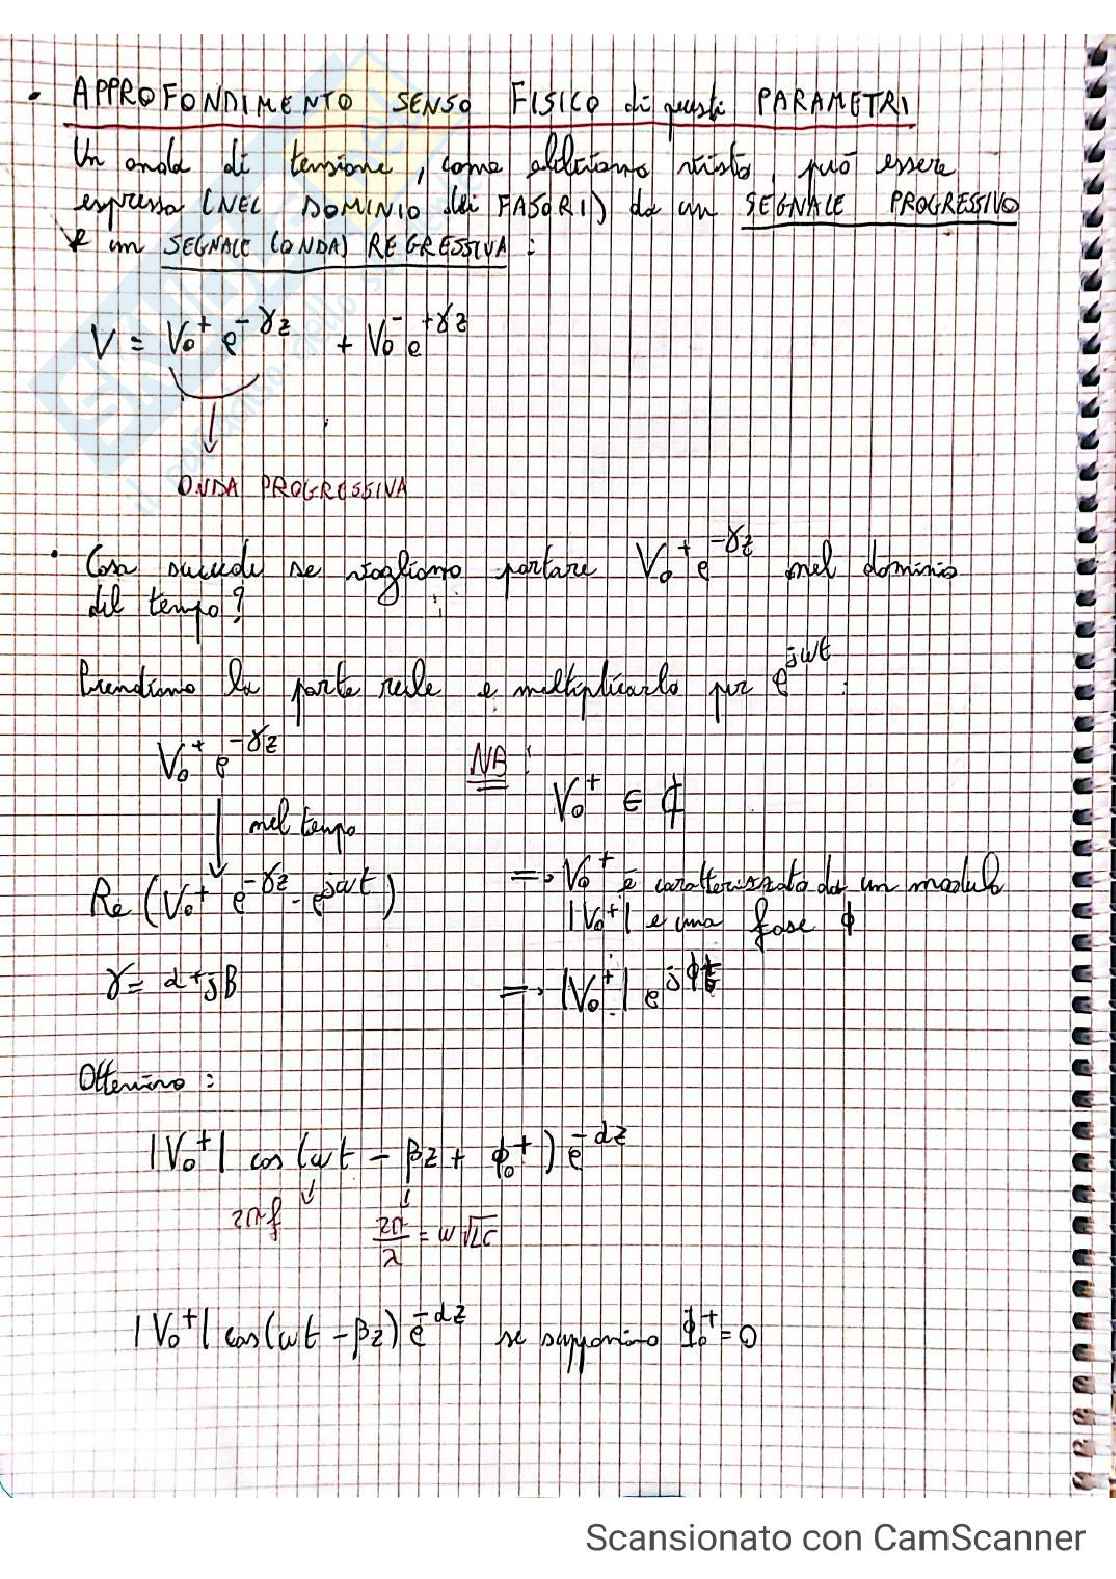 • APPROFONDIMENTO SENSO FISICO di questi PARAMETRI
Un onda di tensione, come abbiamo visto, può essere
espressa (NEL DOMINIO dei FASORI) da un SEGNALE PROGRESSIVO
e un SEGNALE (ONDA) REGRESSIVA:
V = V₀⁺ e^-γz + V₀⁻ e^+γz
ONDA PROGRESSIVA
• Cosa succede se vogliamo portare V₀⁺ e^-γz nel dominio
del tempo?
Prendiamo la parte reale e moltiplicarla per e^jωt :
V₀⁺ e^-γz
NB:
V₀⁺ ∈ ℂ
nel tempo
Re (V₀⁺ e^-γz · e^jωt)
=> V₀⁺ è caratterizzato da un modulo
|V₀⁺| e una fase ϕ
γ = α + jβ
=> |V₀⁺| e^jϕ
Otteniamo:
|V₀⁺| cos (ωt - βz + ϕ₀⁺) e^-αz
2πf
2π/λ = ω√LC
|V₀⁺| cos(ωt - βz) e^-αz se supponiamo ϕ₀⁺ = 0
Scansionato con CamScanner